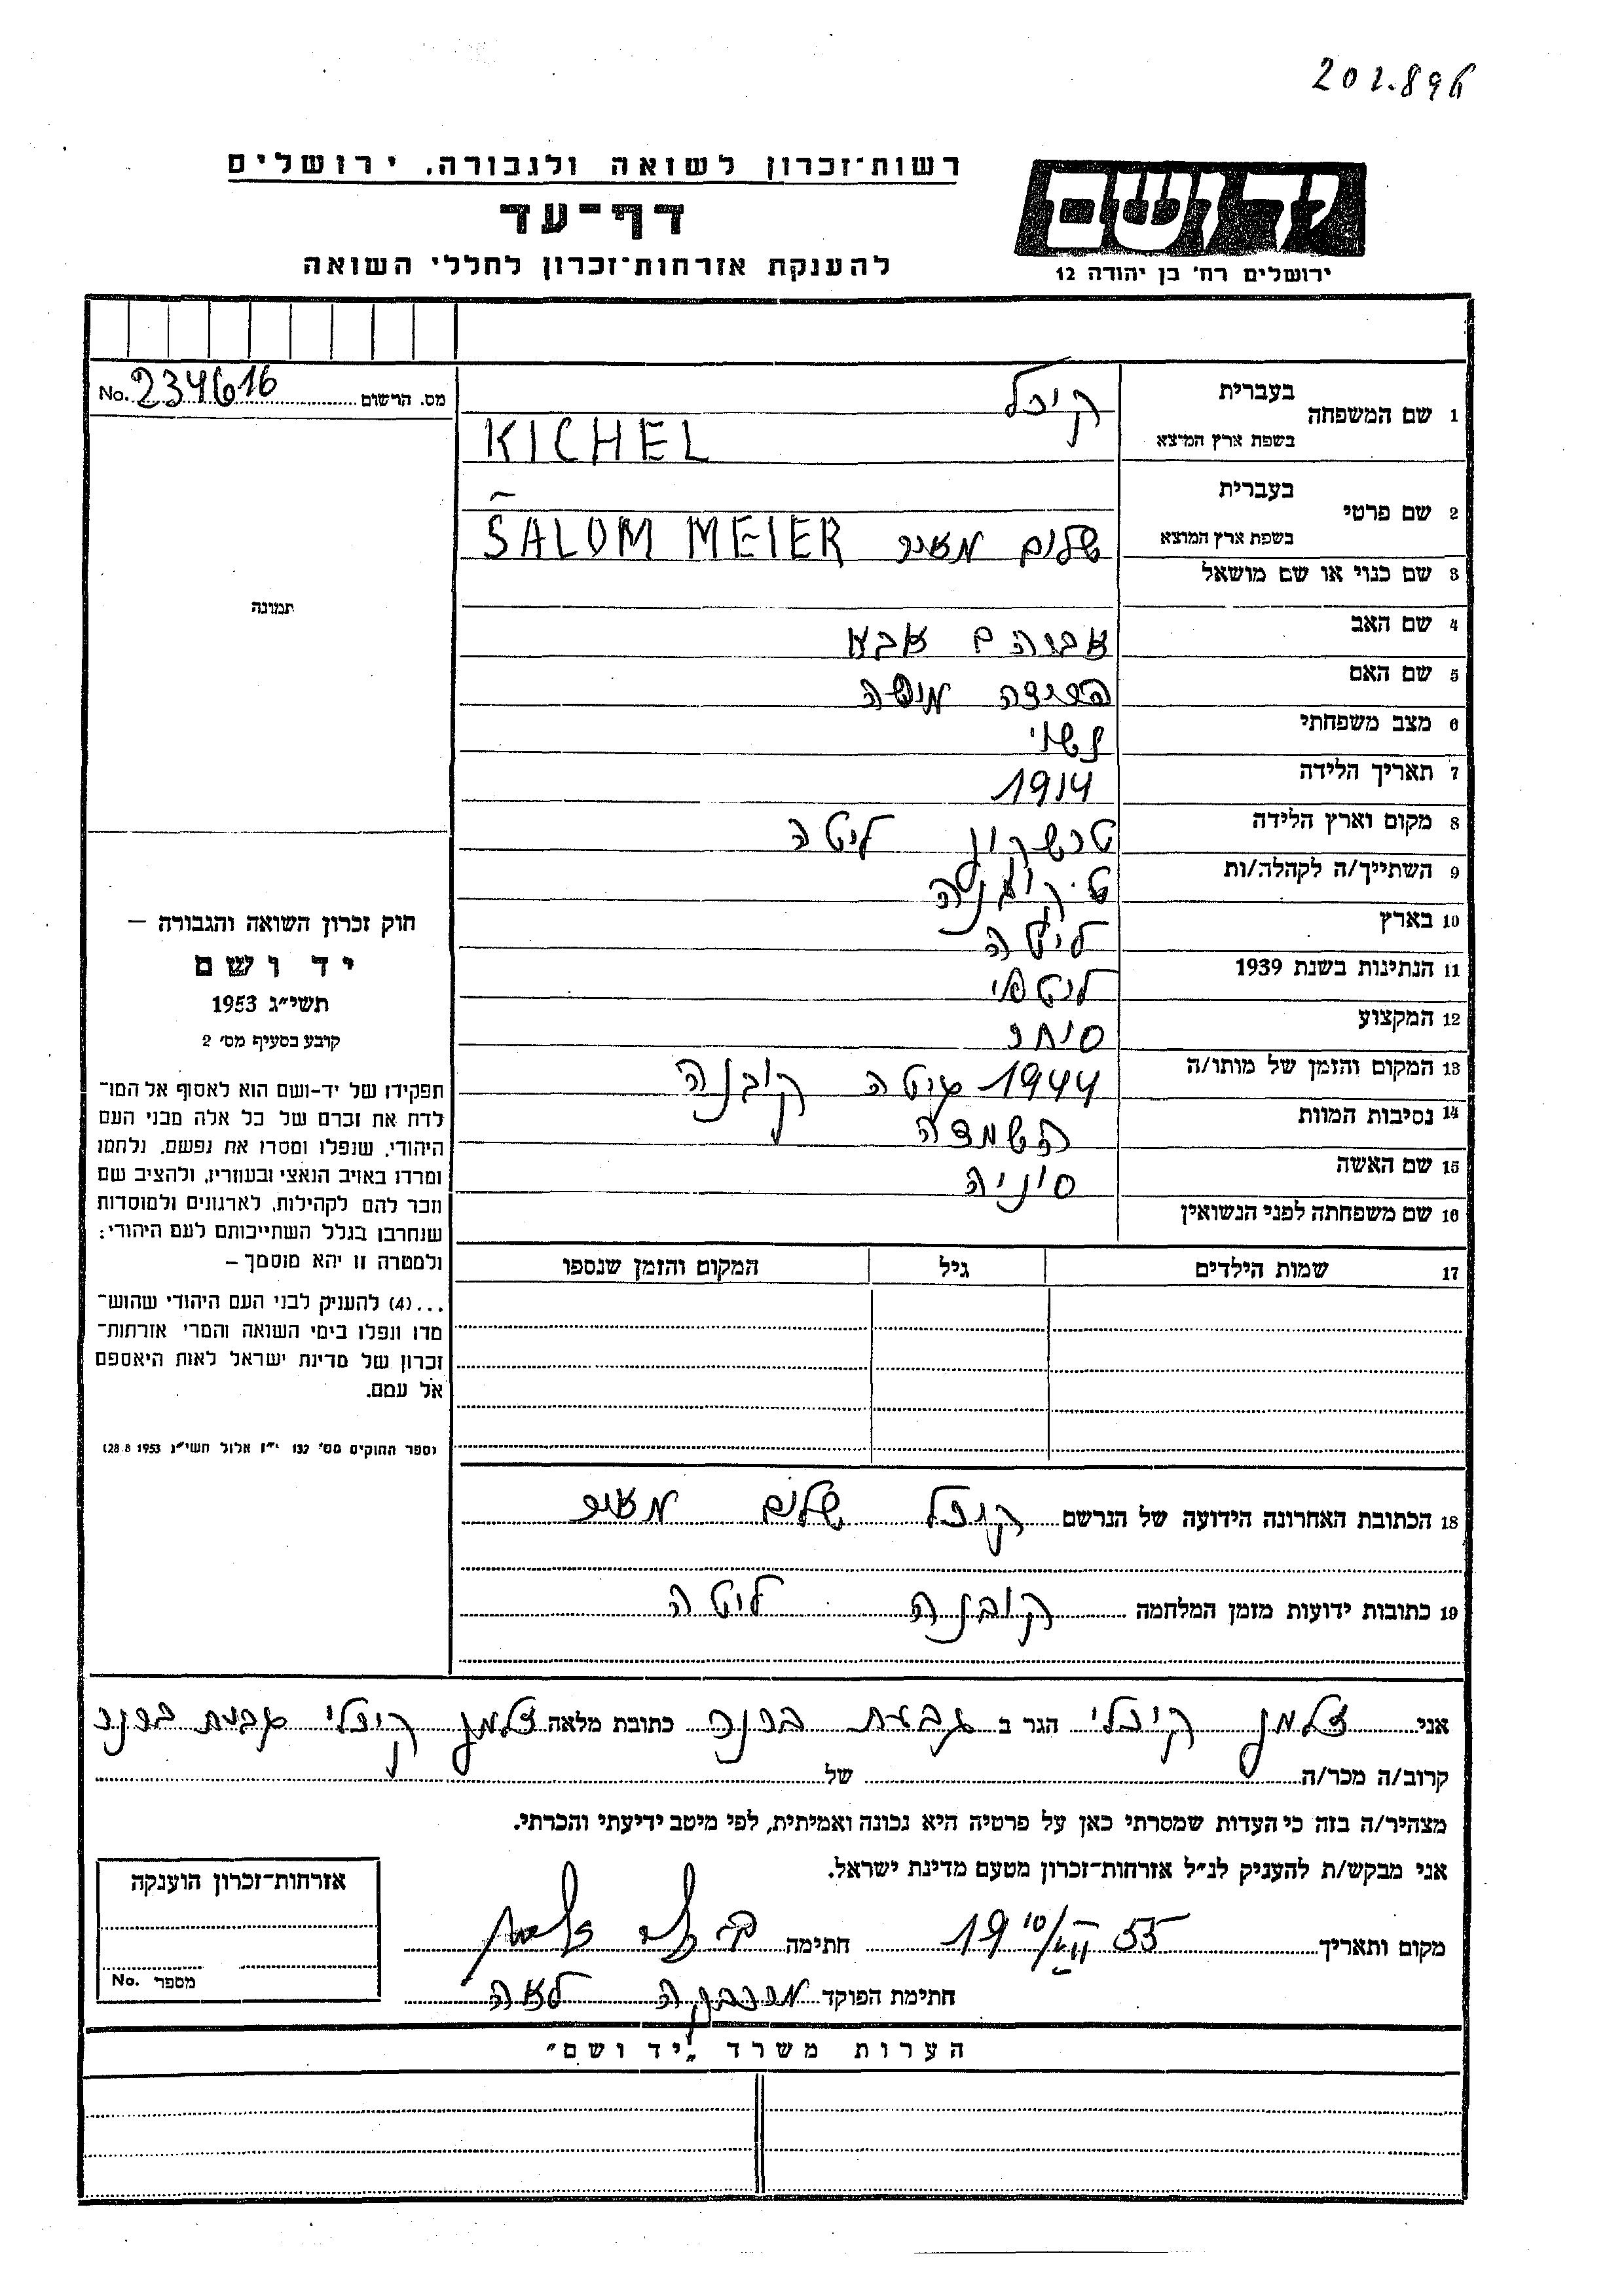 201.896
רשות־זכרון לשואה ולגבורה. ירושלים
דף־עד
להענקת אזרחות־זכרון לחללי השואה
יד ושם
ירושלים רח' בן יהודה 12
No. 234616 מס. הרשום
1 שם המשפחה
בעברית קיכל
בשפת ארץ המוצא KICHEL
2 שם פרטי
בעברית
בשפת ארץ המוצא שלום מאיר ŠALOM MEIER
3 שם כנוי או שם מושאל
4 שם האב אברהם אבא
5 שם האם
6 מצב משפחתי נשוי
7 תאריך הלידה 1914
8 מקום וארץ הלידה ליטה
9 השתייך/ה לקהלה/ות
10 בארץ ליטה
11 הנתינות בשנת 1939 ליטאי
12 המקצוע סוחר
13 המקום והזמן של מותו/ה 1944 גיטה קובנה
14 נסיבות המוות השמדה
15 שם האשה סוניה
16 שם משפחתה לפני הנשואין
17 שמות הילדים גיל המקום והזמן שנספו
18 הכתובת האחרונה הידועה של הנרשם קיכל שלום מאיר
19 כתובות ידועות מזמן המלחמה קובנה ליטה
תמונה
חוק זכרון השואה והגבורה –
יד ושם
תשי״ג 1953
קובע בסעיף מס׳ 2
תפקידו של יד-ושם הוא לאסוף אל המו־
לדת את זכרם של כל אלה מבני העם
היהודי, שנפלו ומסרו את נפשם, נלחמו
ומרדו באויב הנאצי ובעוזריו, ולהציב שם
וזכר להם לקהילות, לארגונים ולמוסדות
שנחרבו בגלל השתייכותם לעם היהודי:
ולמטרה זו יהא מוסמך –
...(4) להעניק לבני העם היהודי שהוש־
מדו ונפלו בימי השואה והמרי אזרחות־
זכרון של מדינת ישראל לאות היאספם
אל עמם.
(ספר החוקים מס׳ 132 י״ז אלול תשי״ג 28.8.1953)
אני זלמן קיכלי הגר ב גבעת ברנר כתובת מלאה זלמן קיכלי גבעת ברנר
קרוב/ה מכר/ה של
מצהיר/ה בזה כי העדות שמסרתי כאן על פרטיה היא נכונה ואמיתית, לפי מיטב ידיעתי והכרתי.
אני מבקש/ת להעניק לנ״ל אזרחות־זכרון מטעם מדינת ישראל.
מקום ותאריך 1955 חתימה
חתימת הפוקד לאה
אזרחות־זכרון הוענקה
מספר No.
הערות משרד „יד ושם״